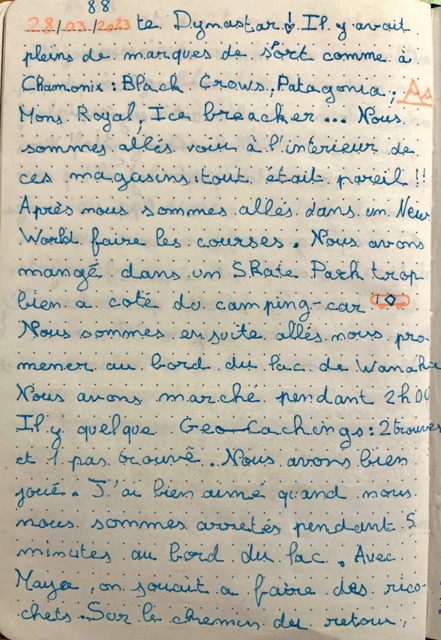 88
28/03/2023 te Dymastar! Il y avait
pleins de marques de sport comme à
Chamonix : Black Crows, Patagonia,
Mons Royal, Ice breacker... Nous
sommes allés voir à l'interieur de
ces magasins tout était pareil !!
Après nous sommes allés dans un New
World faire les courses. Nous avons
mangé dans un Skate Park trop
bien a coté du camping-car
Nous sommes ensuite allés nous pro-
mener au bord du lac de Wanaka
Nous avons marché pendant 2h00
Il y quelque Geo-Cachings : 2 trouves
et 1 pas trouvé. Nous avons bien
joué. J'ai bien aimé quand nous
nous sommes arretés pendant 5
minutes au bord du lac. Avec
on jouait a faire des rico-
chets. Sur le chemin du retour,